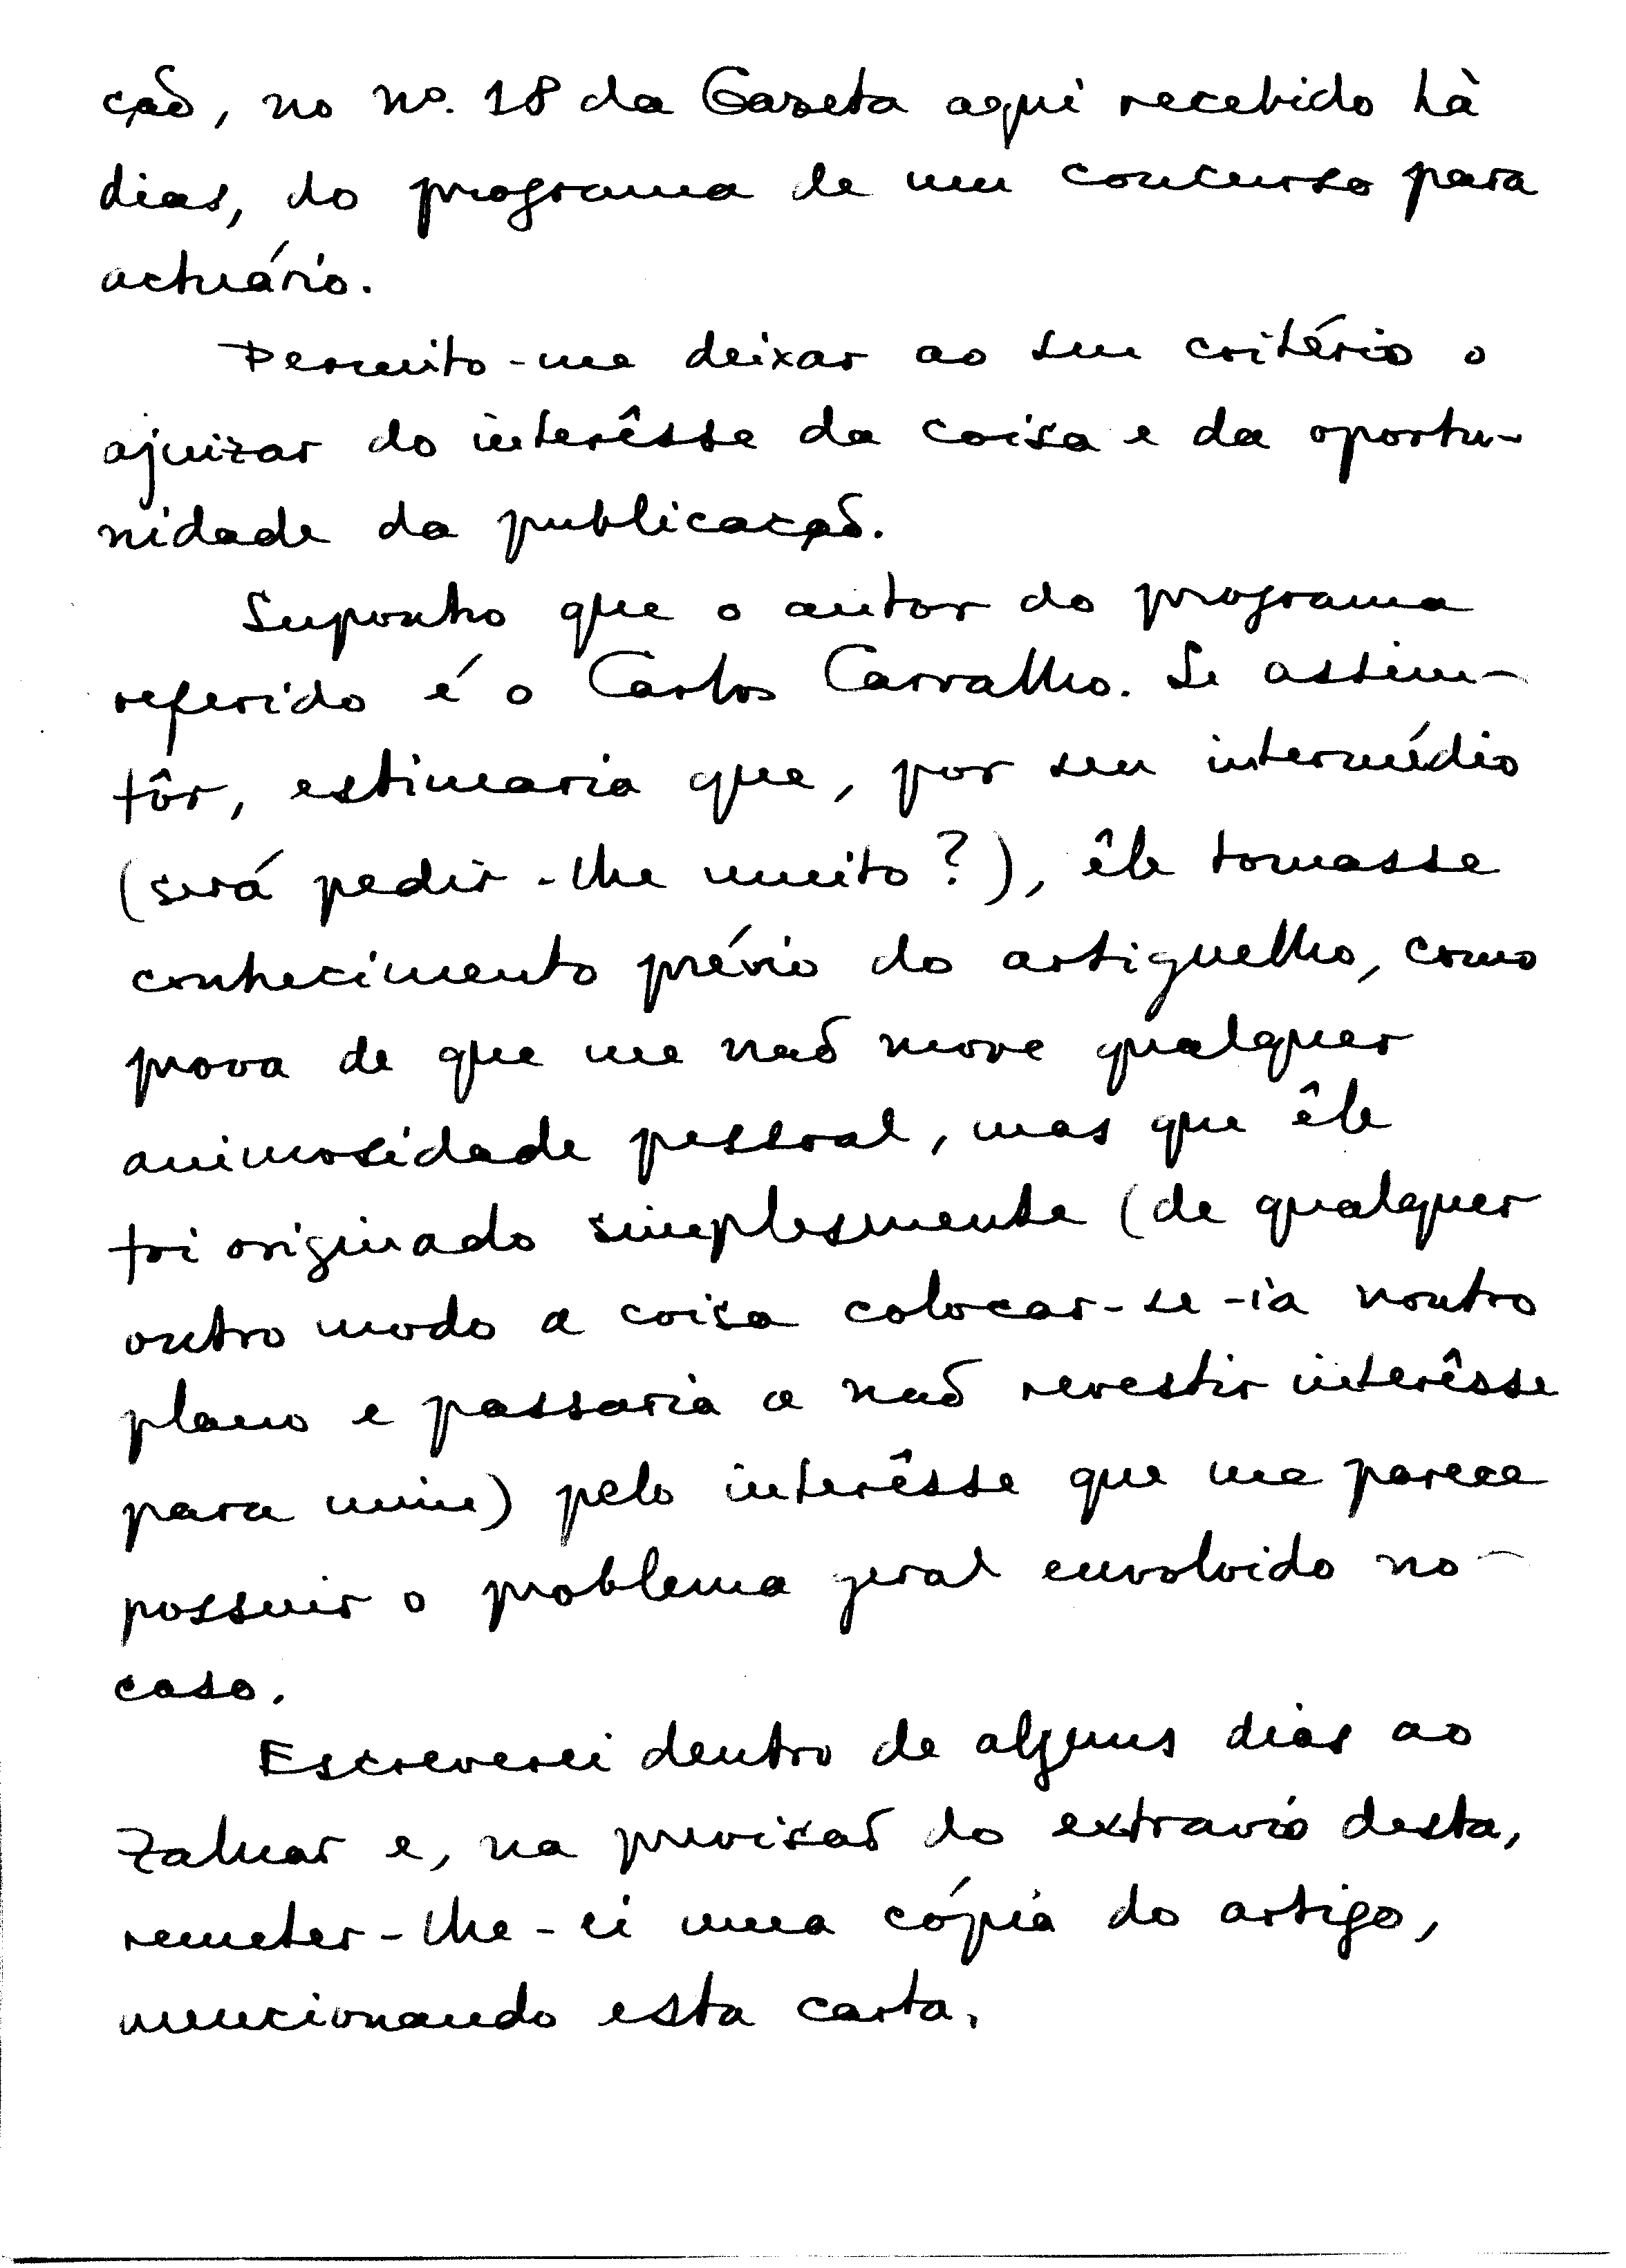 ção, no nº. 18 da Gazeta aqui recebido hà
dias, do programa de um concurso para
actuário.
Permito-me deixar ao seu critério o
ajuizar do interêsse da coisa e da oportu-
nidade da publicação.
Suponho que o autor do programa
referido é o Carlos Carvalho. Se assim
fôr, estimaria que, por seu intermédio
(será pedir-lhe muito?), êle tomasse
conhecimento prévio do artiguelho, como
prova de que me não move qualquer
animosidade pessoal, mas que êle
foi originado simplesmente (de qualquer
outro modo a coisa colocar-se-ia noutro
plano e passaria a não revestir interêsse
para mim) pelo interêsse que me parece
possuir o problema geral envolvido no
caso.
Escreverei dentro de alguns dias ao
Zaluar e, na previsão do extravio desta,
remeter-lhe-ei uma cópia do artigo,
mencionando esta carta.